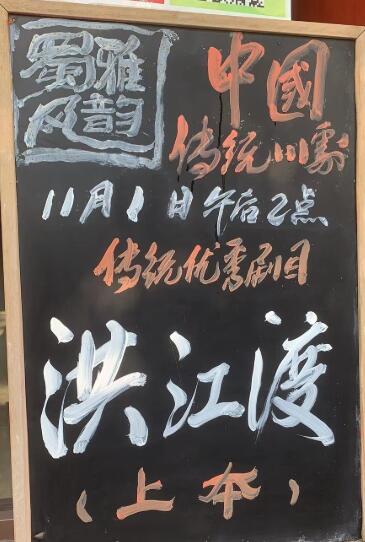 蜀风
雅韵
中國
传统川劇
11月1日午后2点
传统优秀剧目
洪江渡
(上本)